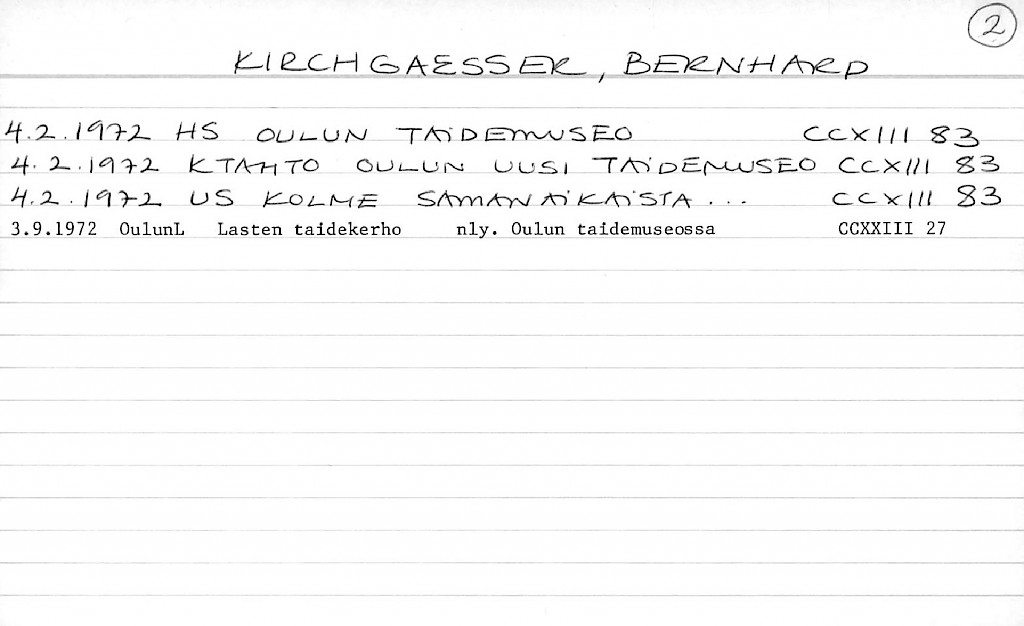 2
KIRCHGAESSER, BERNHARD
4.2.1972 HS OULUN TAIDEMUSEO CCXIII 83
4.2.1972 KTAHTO OULUN UUSI TAIDEMUSEO CCXIII 83
4.2.1972 US KOLME SAMANAIKAISTA... CCXIII 83
3.9.1972 OulunL Lasten taidekerho nly. Oulun taidemuseossa CCXXIII 27